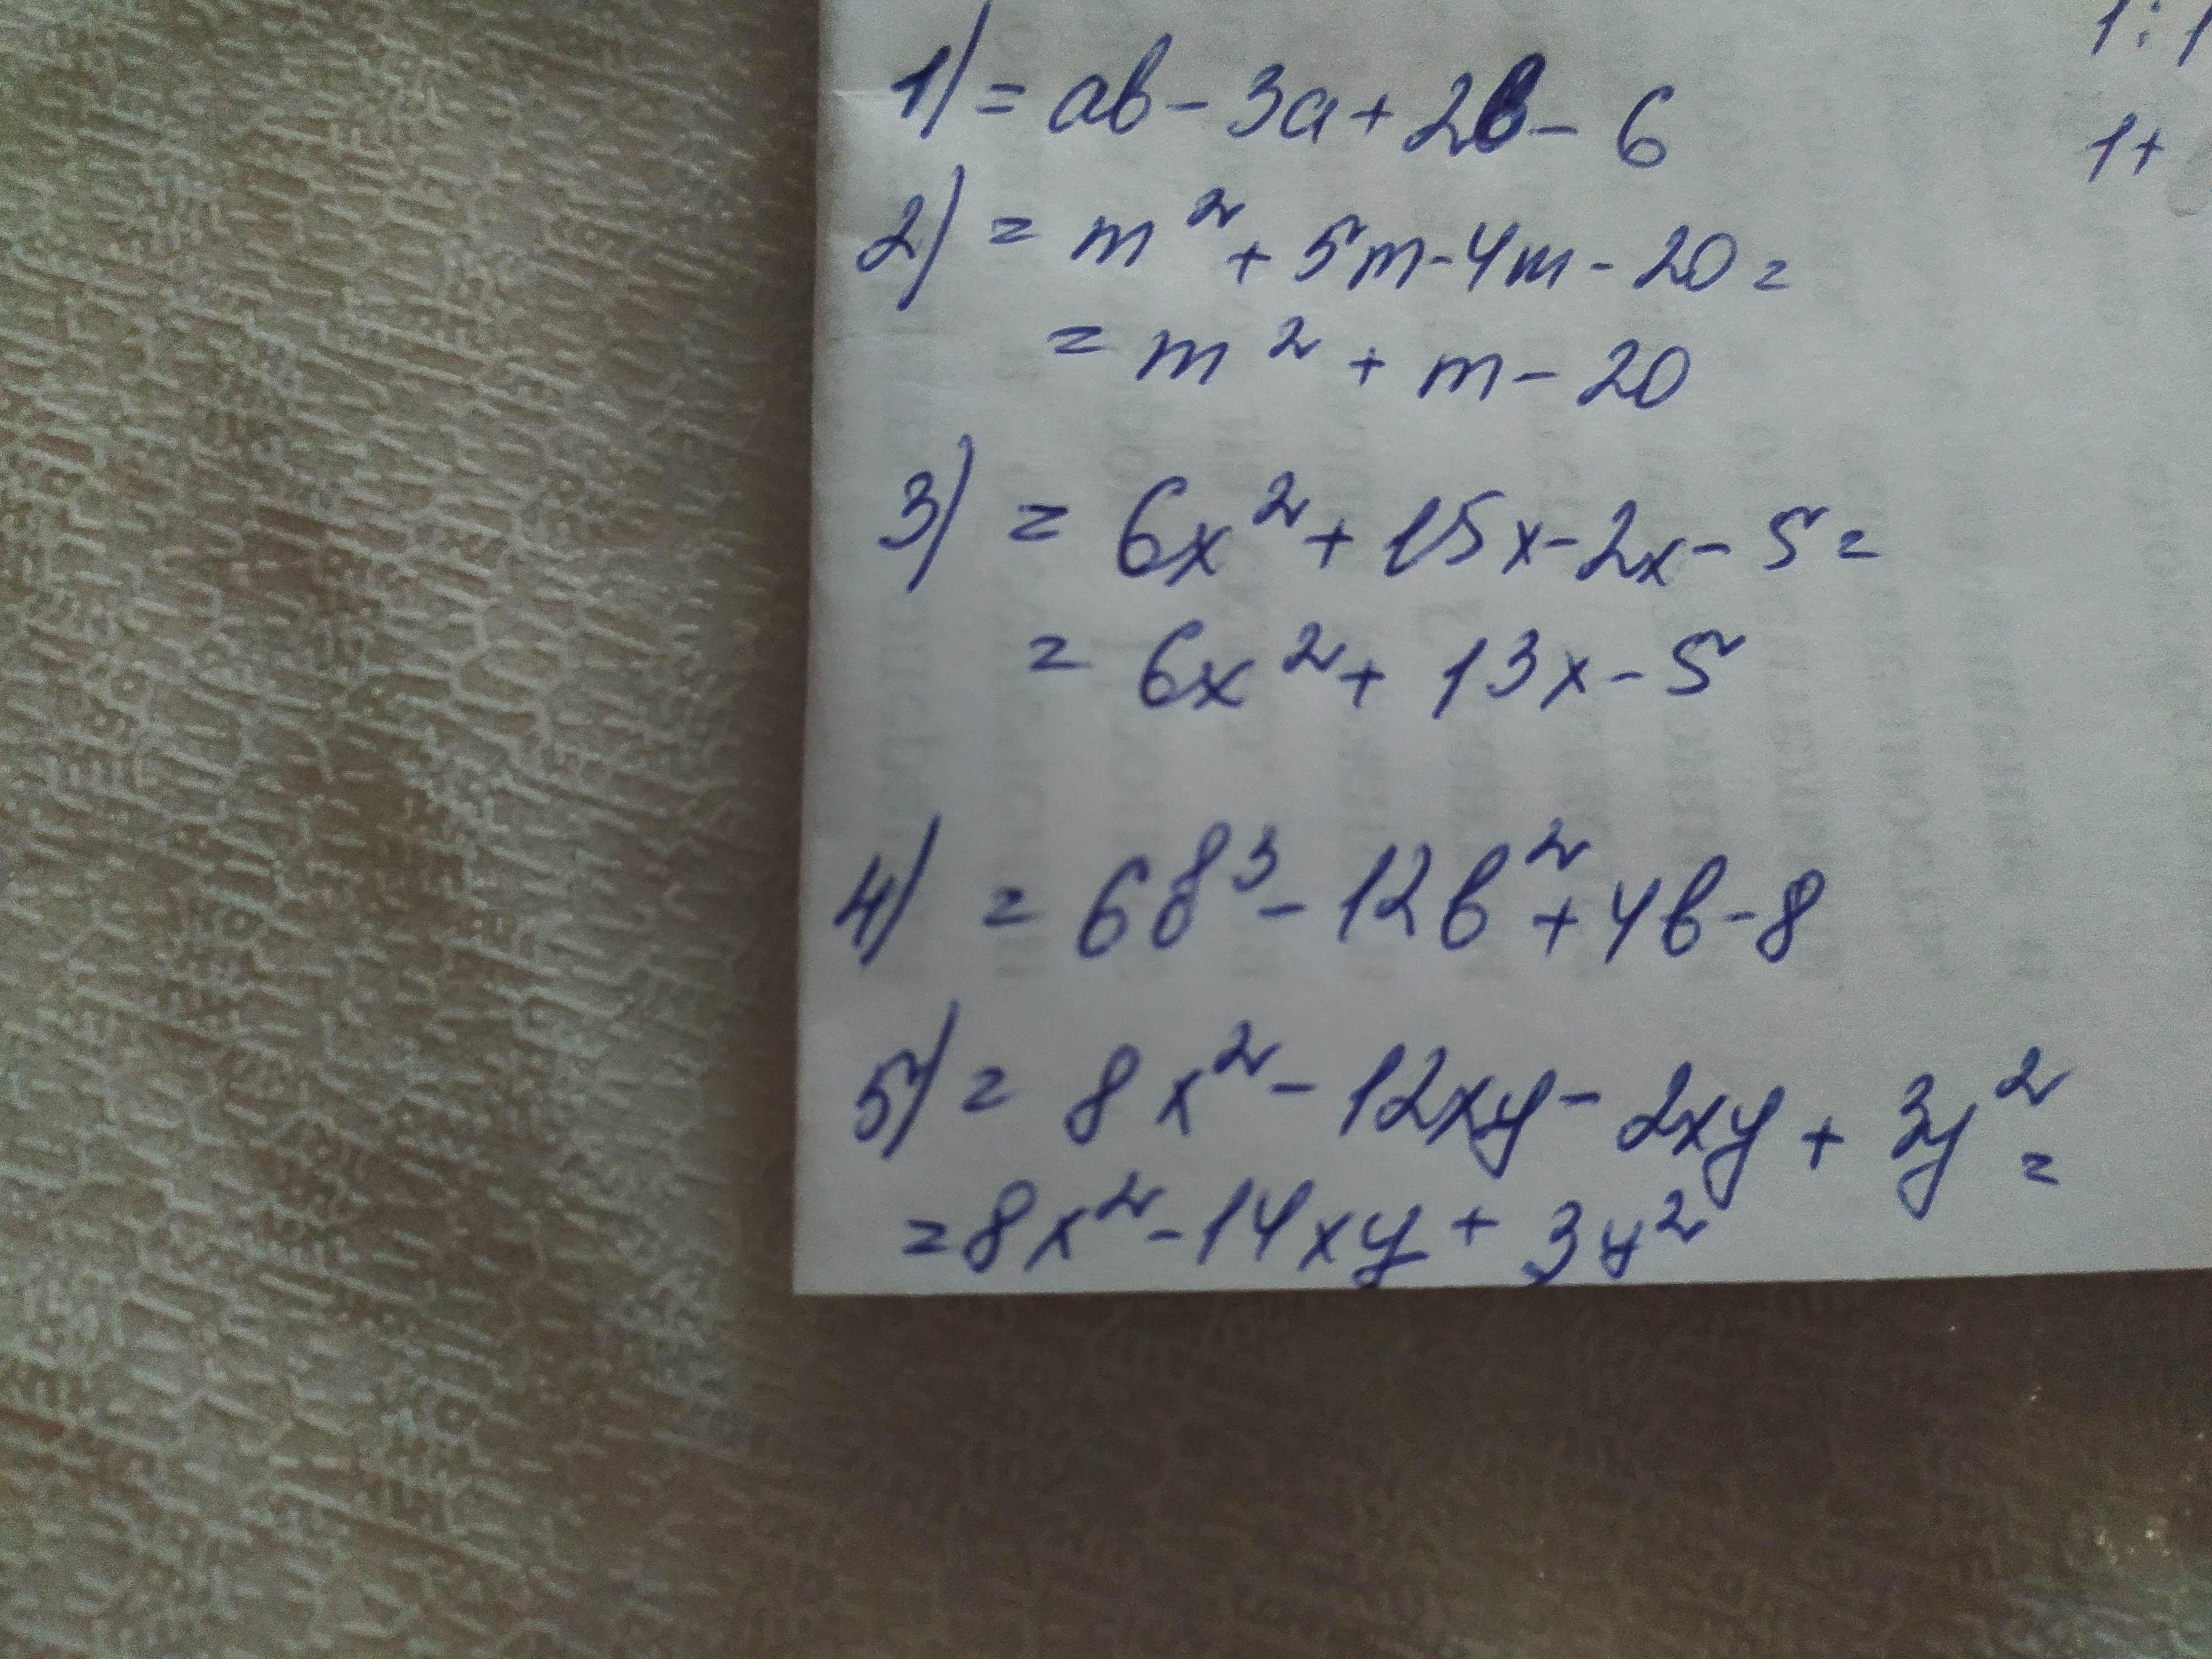 1) = ab - 3a + 2b - 6
2) = m² + 5m - 4m - 20 =
= m² + m - 20
3) = 6x² + 15x - 2x - 5 =
= 6x² + 13x - 5
4) = 6b³ - 12b² + 4b - 8
5) = 8x² - 12xy - 2xy + 3y² =
= 8x² - 14xy + 3y²
1:1
1+